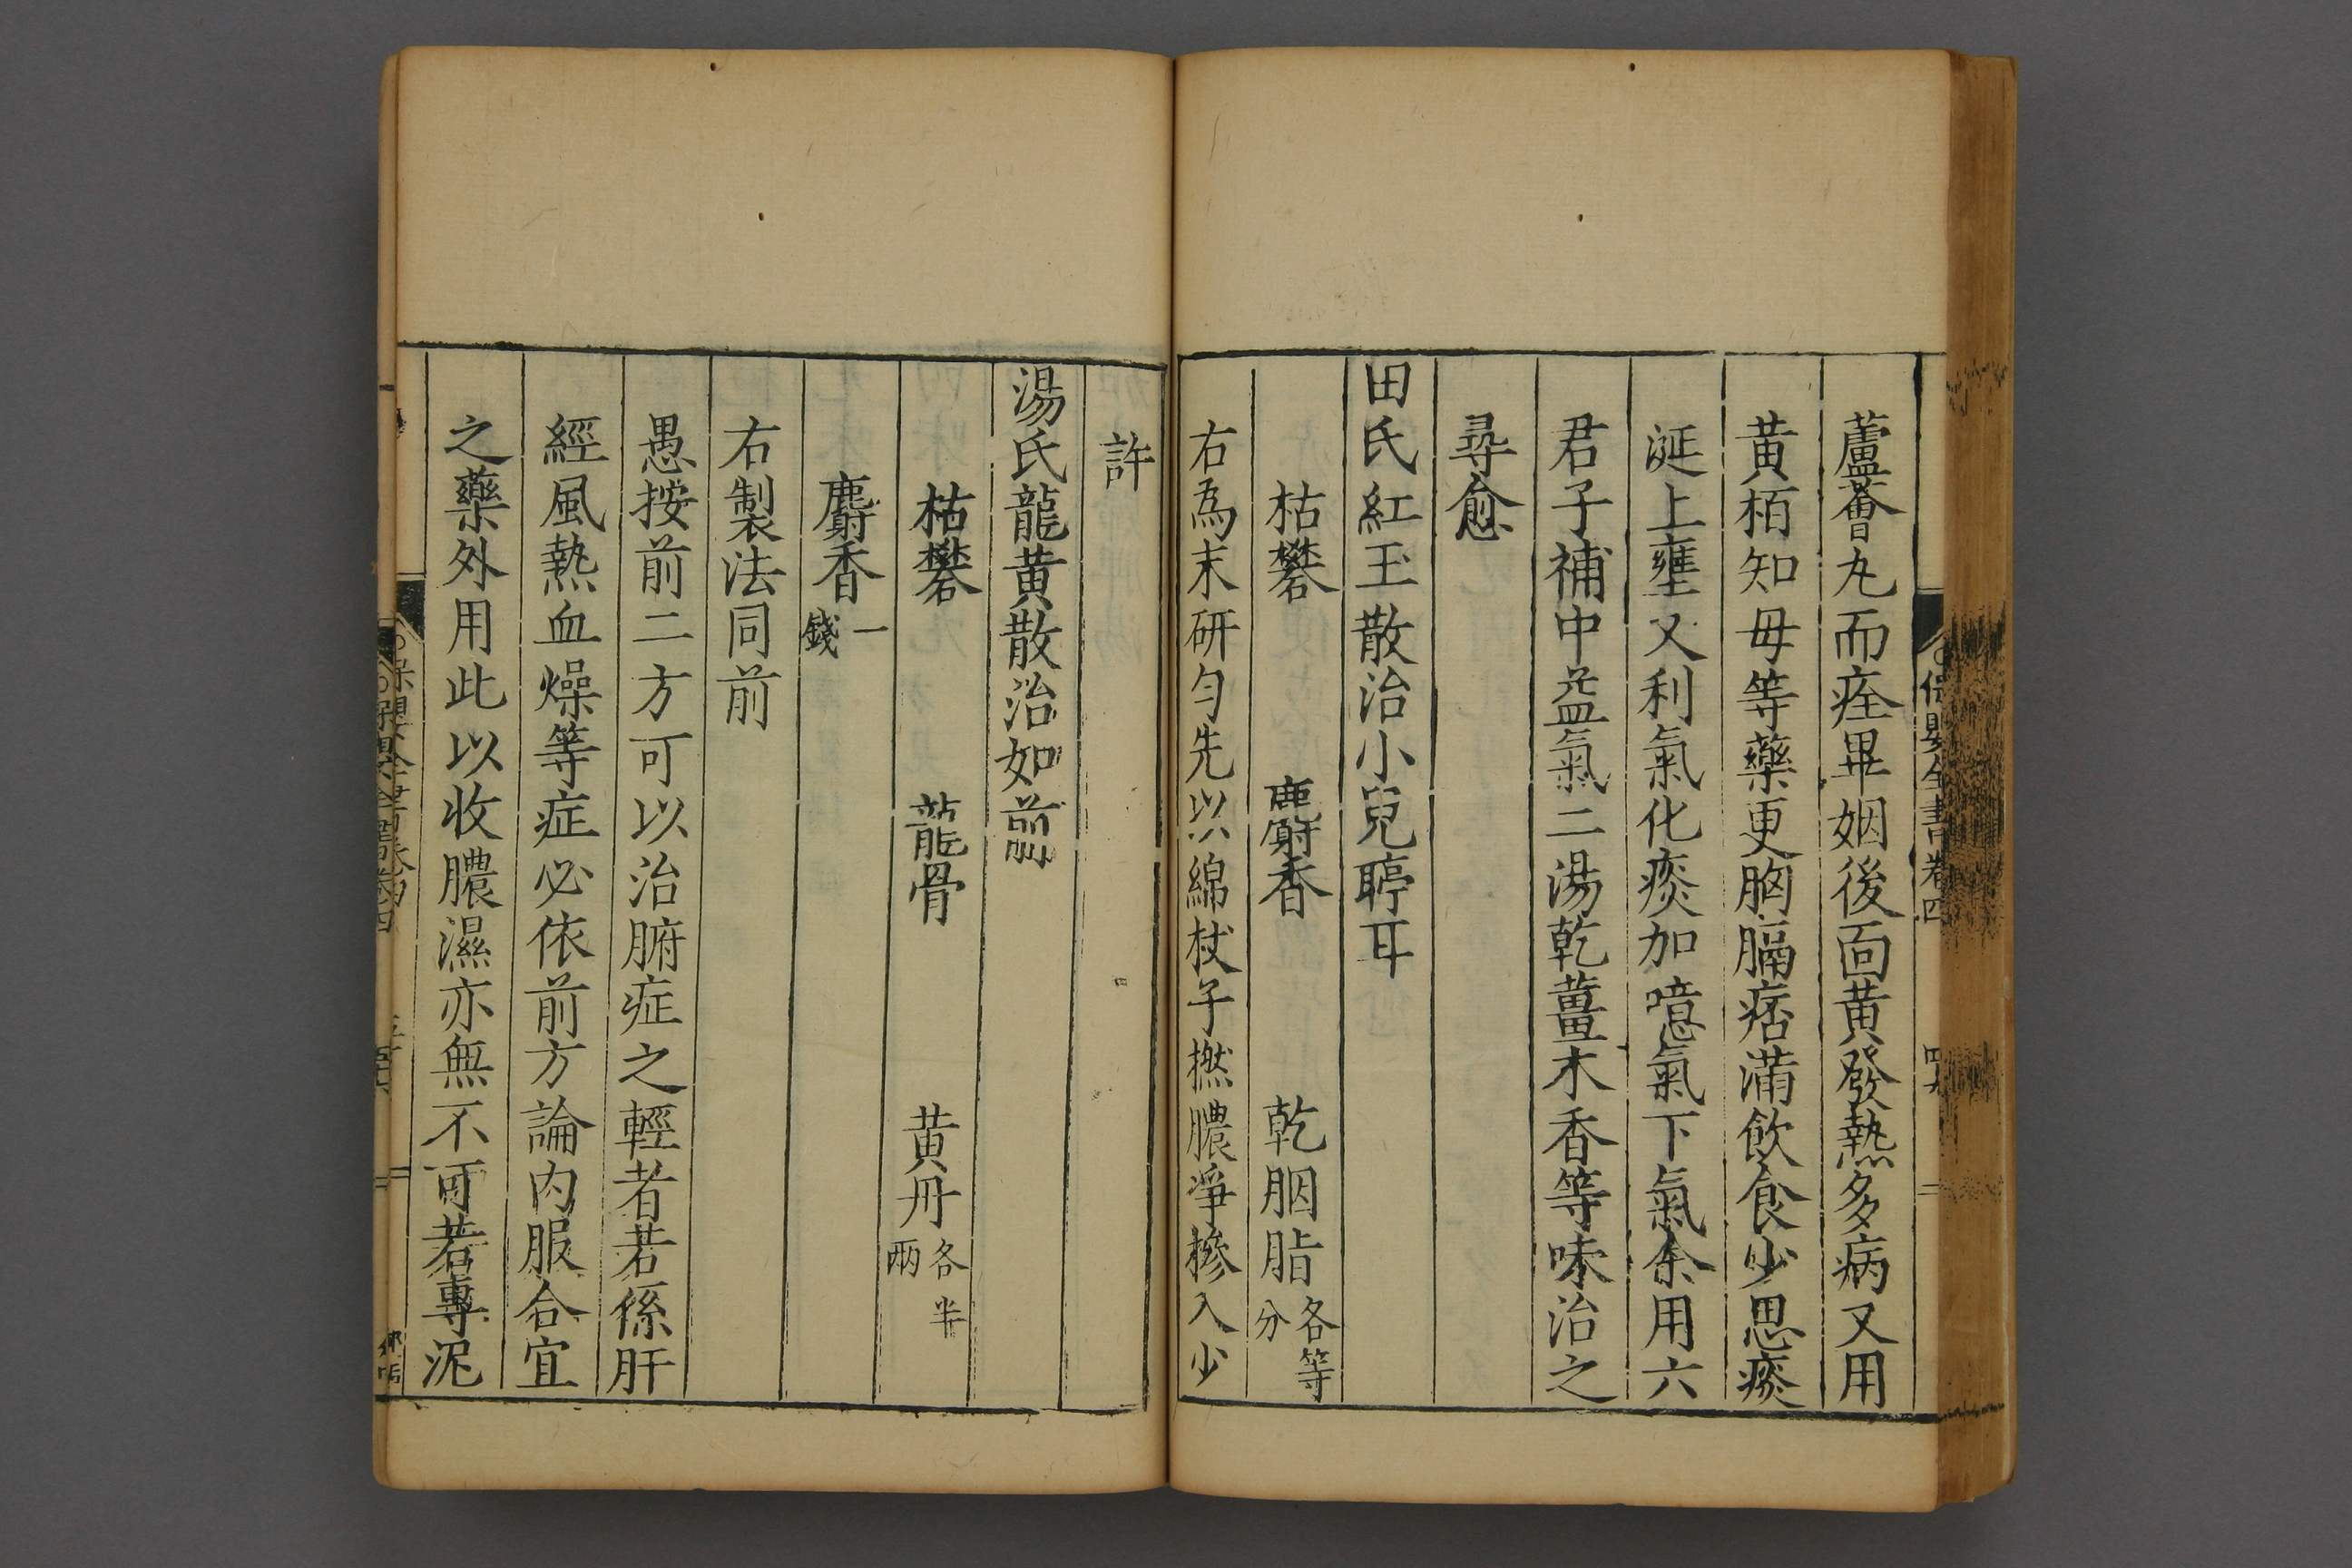 保嬰全書卷四
蘆薈丸而痊畢姻後面黄發熱多病又用
黄栢知母等藥更胸膈痞滿飲食少思痰
涎上壅又利氣化痰加噫氣下氣余用六
君子補中益氣二湯乾薑木香等味治之
尋愈
田氏紅玉散治小兒聤耳
枯礬 麝香 乾胭脂各等分
右為末研勻先以綿杖子撚膿凈摻入少
許
湯氏龍黄散治如前
枯礬 龍骨 黄丹各半兩
麝香一錢
右製法同前
愚按前二方可以治腑症之輕者若係肝
經風熱血燥等症必依前方論内服合宜
之藥外用此以收膿濕亦無不可若專泥